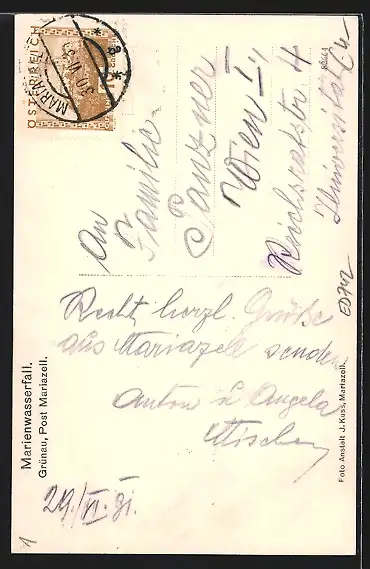 ÖSTERREICH
MARIAZ
30.VI.31
An
Familie
Panzner
Wien I.,
Reichsratstr 4
Universität
Recht herzl. Grüße
aus Mariazell senden
Anton u Angela
29./VI. 31.
Marienwasserfall.
Grünau, Post Mariazell.
Foto Anstalt J. Kuss, Mariazell.
ED742
1